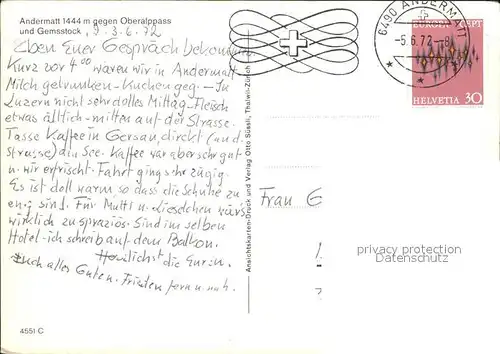 Andermatt 1444 m gegen Oberalppass
und Gemsstock
, 3.6.72
Eben Euer Gespräch bekommen
Kurz vor 4⁰⁰ waren wir in Andermatt
Milch getrunken - Kuchen geg. - In
Luzern nicht sehr dolles Mittag - Fleisch
etwas ältlich - mitten auf der Strasse.
Tasse Kaffee in Gersau direkt (and
Strasse) am See. Kaffee war aber sehr gut
u. wir erfrischt. Fahrt ging sehr zügig.
Es ist doll warm so dass die Schuhe zu
eng sind. Für Mutti u. Lieschen wär's
wirklich zu spraziös. Sind im selben
Hotel - ich schreib auf dem Balkon.
Herzlichst die Euren.
Auch alles Guten. Frieden fern u. nah.
4551 C
Ansichtskarten-Druck und Verlag Otto Süssli, Thalwil-Zürich
6490 ANDERMATT
-5.6.72.-
EUROPA CEPT
HELVETIA 30
Frau G
privacy protection
Datenschutz